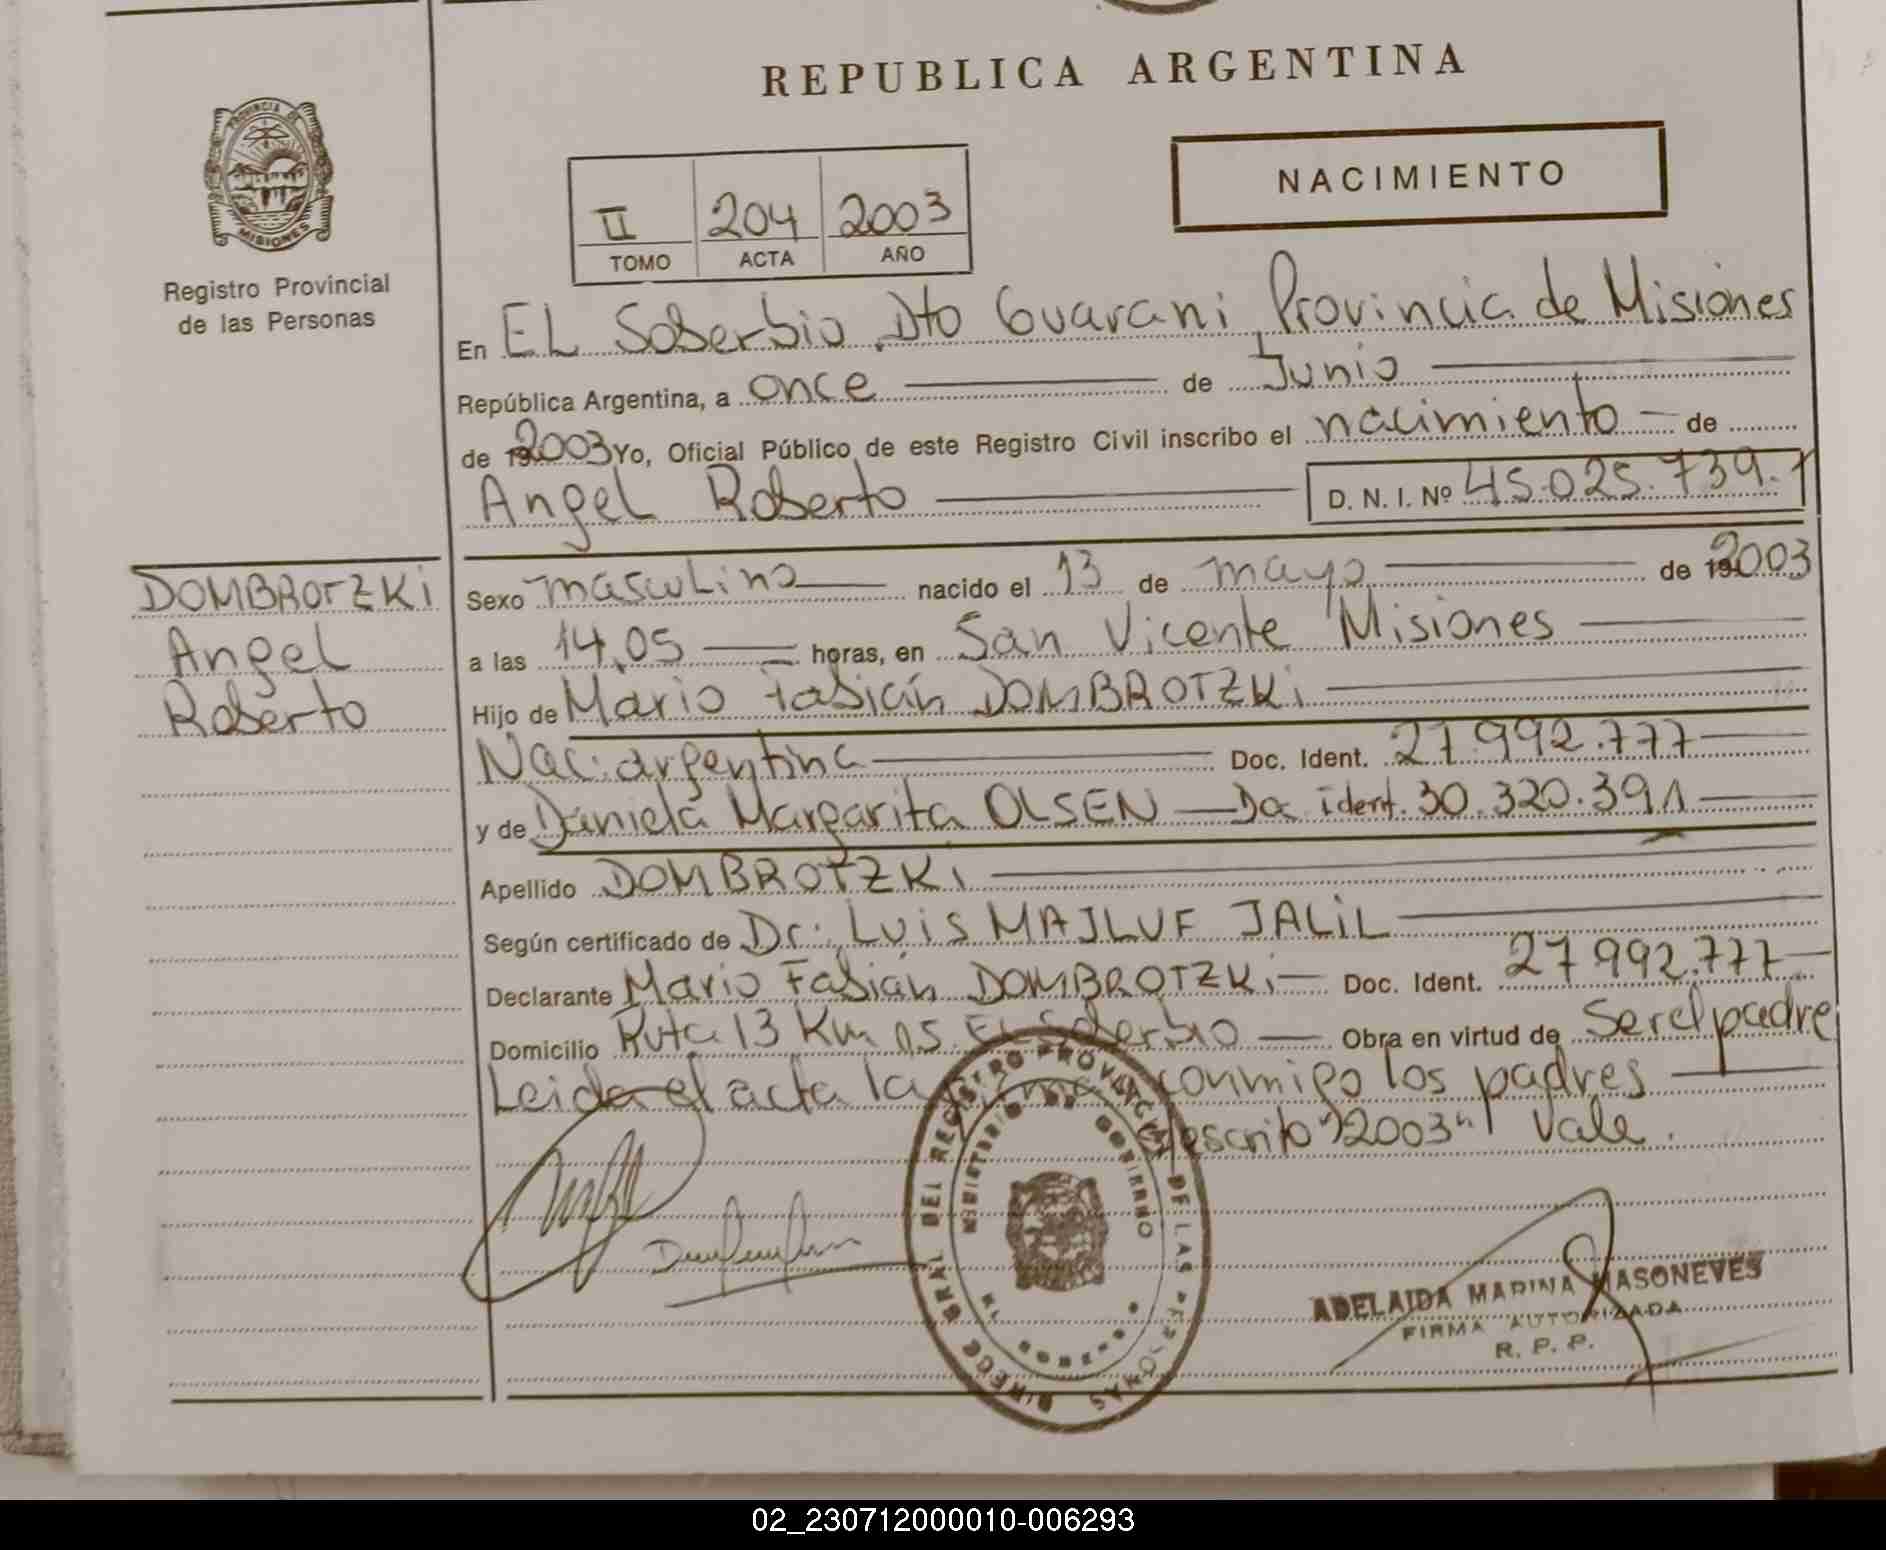 REPUBLICA ARGENTINA
PROVINCIA DE
MISIONES
Registro Provincial
de las Personas
NACIMIENTO
II 204 2003
TOMO ACTA AÑO
En EL Soberbio Dto Guarani, Provincia de Misiones
República Argentina, a once de Junio
de 2003 Yo, Oficial Público de este Registro Civil inscribo el nacimiento de
Angel Roberto D. N. I. Nº 45.025.739.1
DOMBROTZKi
Angel
Roberto
Sexo masculino nacido el 13 de mayo de 2003
a las 14,05 horas, en San Vicente Misiones
Hijo de Mario Fabián DOMBROTZKi
Nac. argentina Doc. Ident. 27.992.777
y de Daniela Margarita OLSEN Doc ident. 30.320.391
Apellido DOMBROTZKi
Según certificado de Dr. Luis MAJLUF JALiL
Declarante Mario Fabián DOMBROTZKi Doc. Ident. 27.992.777
Domicilio Ruta 13 Km 05 El Soberbio Obra en virtud de Ser el padre
Leida el acta la conmigo los padres
"2003" Vale.
DIRECC GRAL DEL REGISTRO PROVINCIAL DE LAS PERSONAS
MINISTERIO DE GOBIERNO
ADELAIDA MARINA MASONEVES
FIRMA AUTORIZADA
R. P. P.
02_230712000010-006293